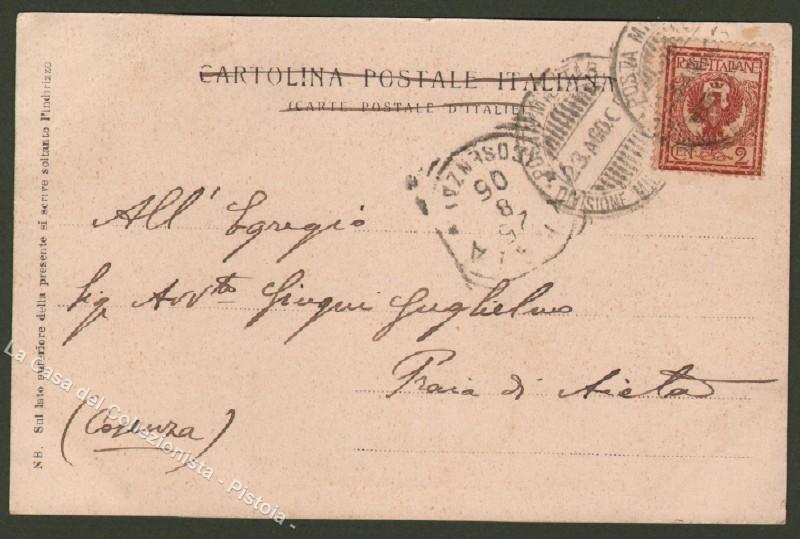 CARTOLINA POSTALE ITALIANA
(CARTE POSTALE D'ITALIE)
POSTE ITALIANE
CENT. 2
POSTA MILITARE
23. AGO. 05
DIVISIONE
POSTA MI
(COSENZA)
25 8 05
All' Egregio
Sig Avv.to Giugni Guglielmo
Praia di Aieta
(Cosenza)
NB. Sul lato anteriore della presente si scrive soltanto l'indirizzo
La Casa del Collezionista - Pistoia -